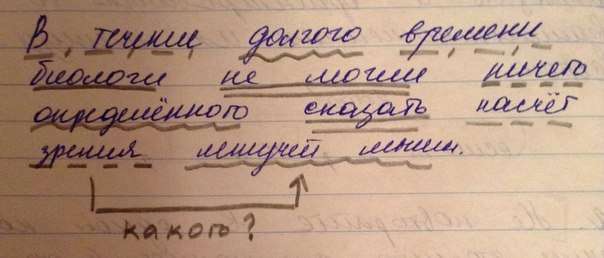 В течение долгого времени
биологи не могли ничего
определённого сказать насчёт
зрения летучей мыши.
какого?